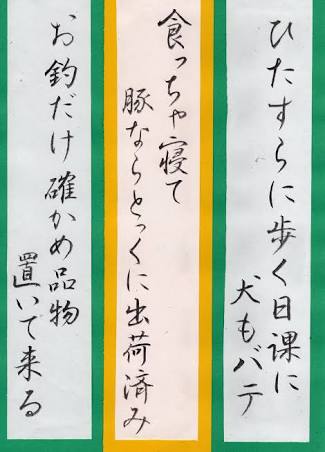 ひたすらに歩く日課に
犬もバテ
食っちゃ寝て
豚ならとっくに出荷済み
お釣だけ確かめ品物
置いて来る